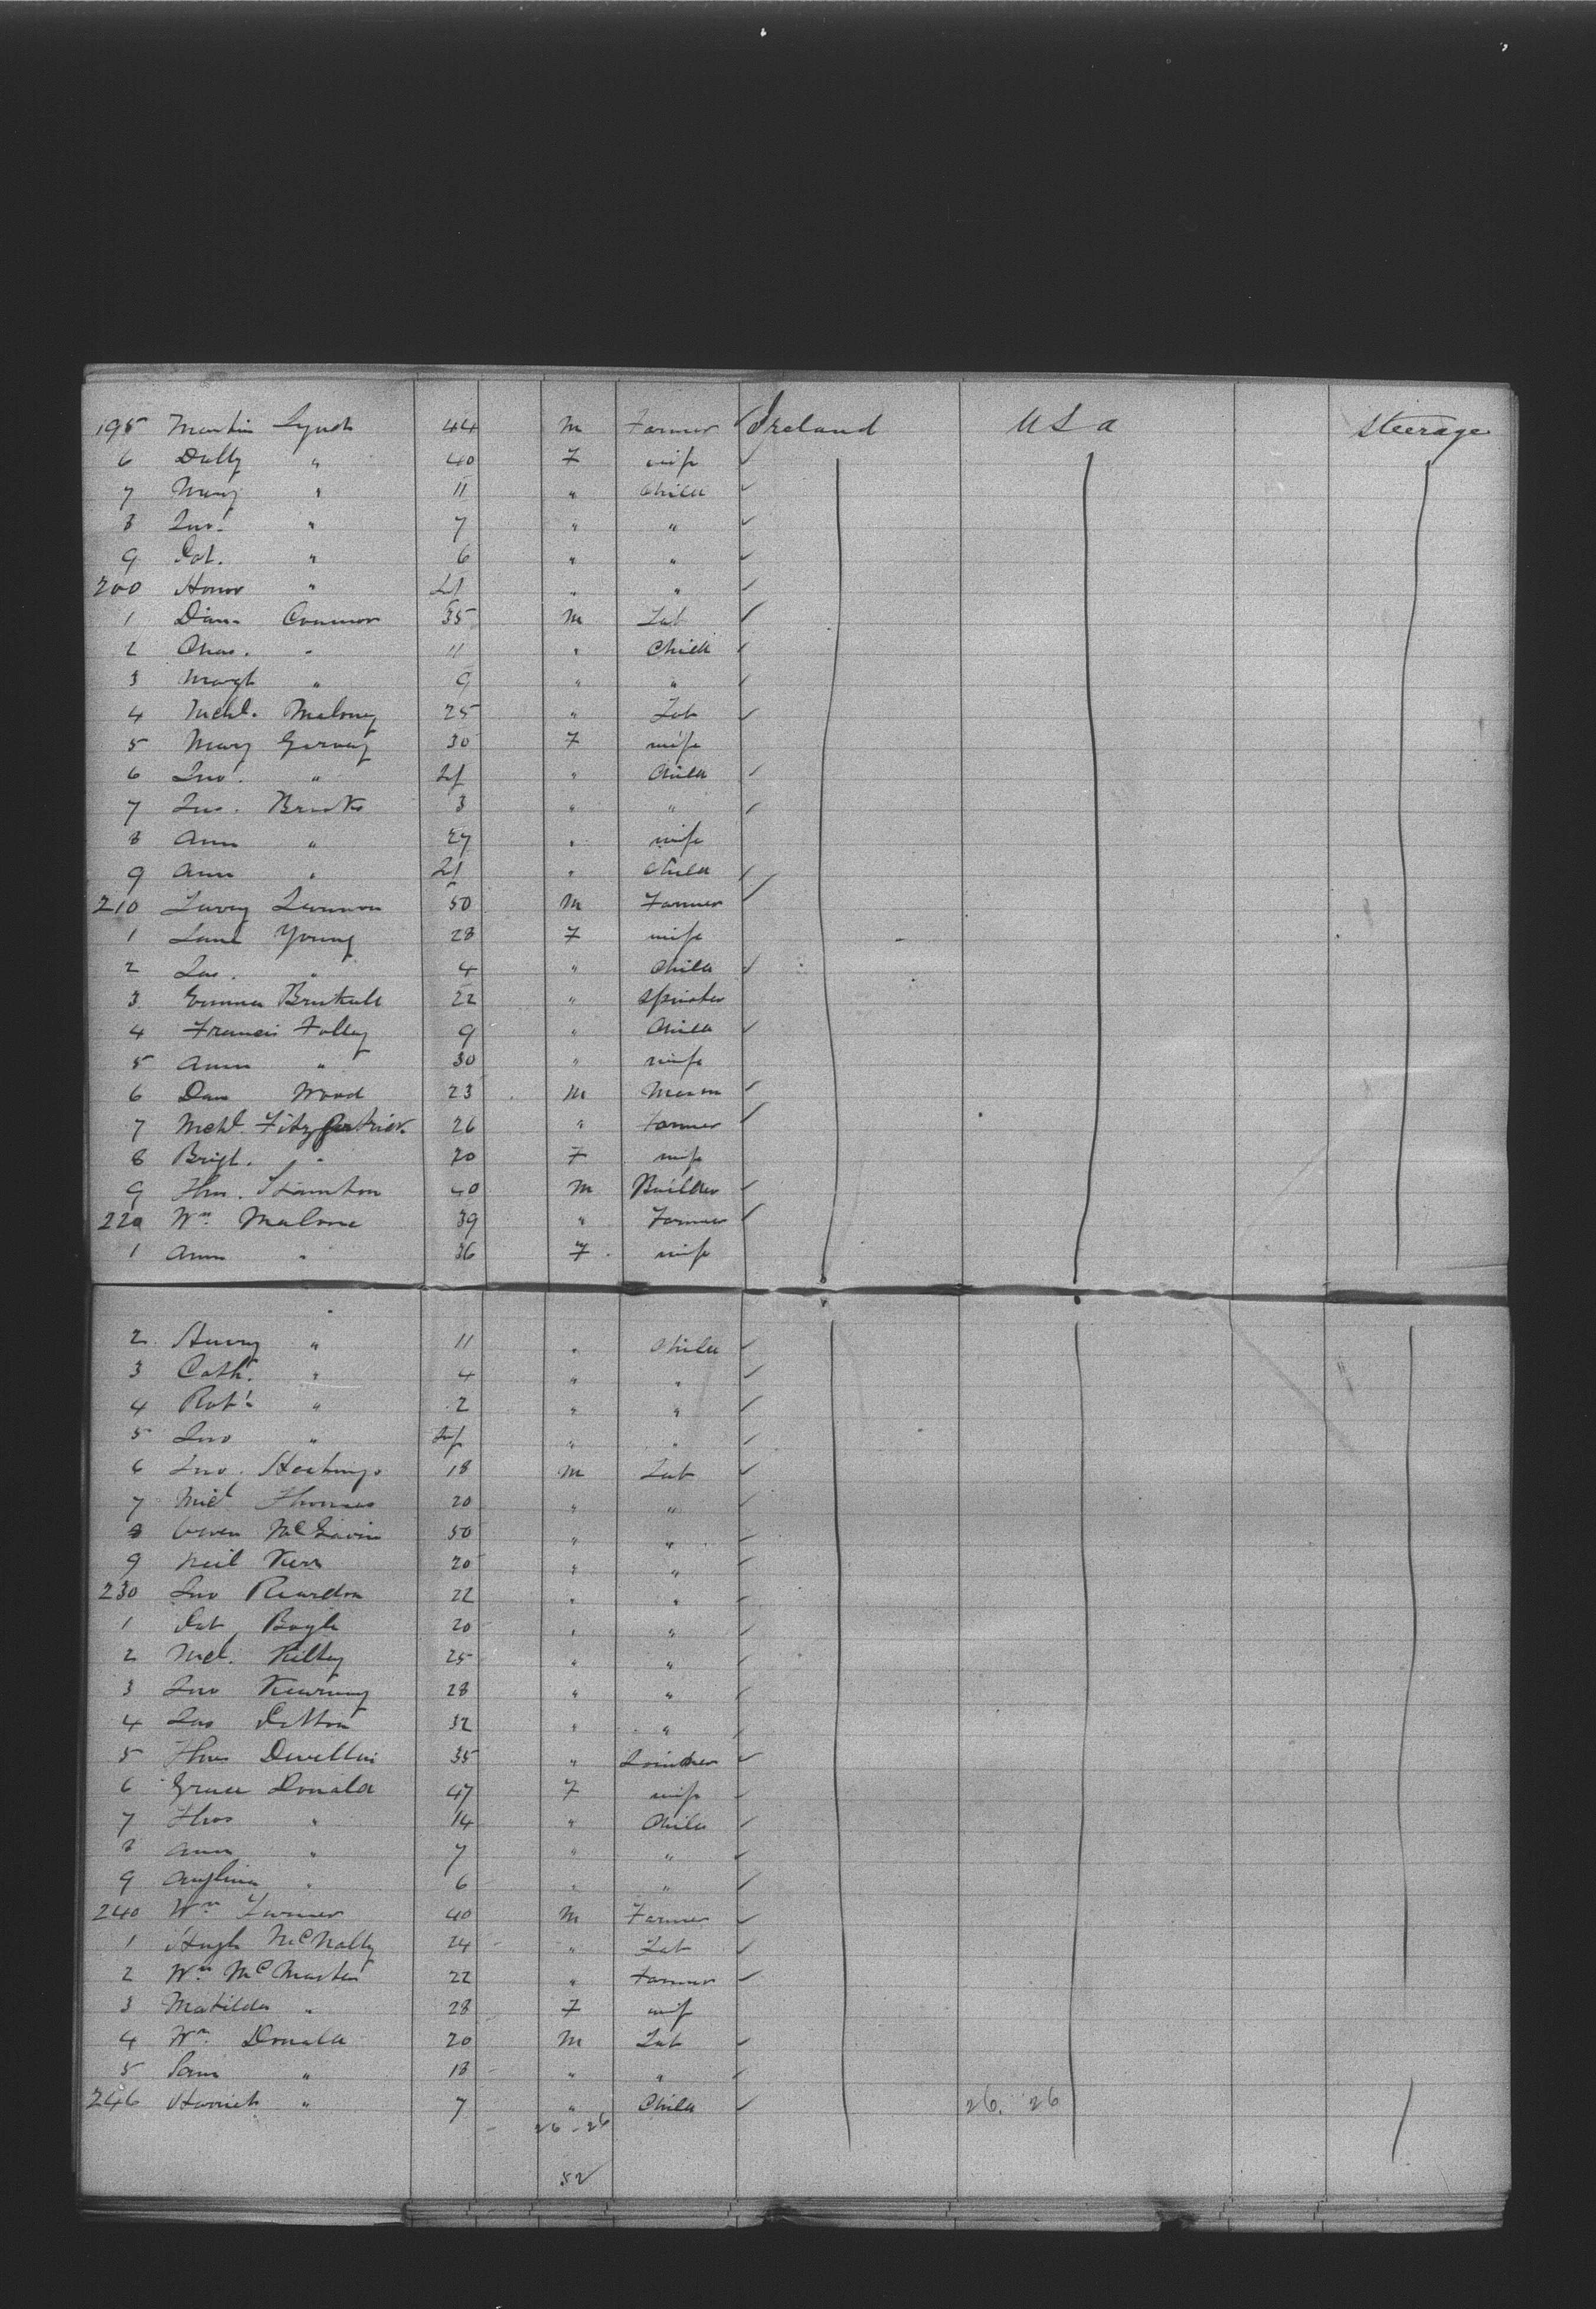 195 Martin Lynch 44 M Farmer Ireland USA Steerage
6 Dolly " 40 F wife
7 Mary " 11 " Child
8 Jno. " 7 " "
9 Pat. " 6 " "
200 Honor " Inf " "
1 Connor 35 M Lab
2 Chas. " 11 " Child
3 Margt " 9 " "
4 Mchl. Maloney 25 " Lab
5 Mary Garvey 30 F wife
6 Jno. " Inf " Child
7 Jas. 3 " "
8 Ann " 27 " wife
9 Ann " Inf " Child
210 50 M Farmer
1 Jane Young 28 F wife
2 Jas. " 4 " Child
3 Emma 22 " Spinster
4 Francis Folley 9 " Child
5 Ann " 30 " wife
6 Dan Wood 23 M Mason
7 Mchl. Fitzpatrick 26 " Farmer
8 Brigt. " 20 F wife
9 Thos. Staunton 40 M Builder
220 Wm Malone 39 " Farmer
1 Ann " 36 F wife
2 " 11 " Child
3 Cath. " 4 " "
4 Robt " 2 " "
5 Jno " Inf " "
6 Jno. Hastings 18 M Lab
7 Michl Thomas 20 " "
8 Owen McGavin 50 " "
9 Neil Kerr 20 " "
230 Jno Reardon 22 " "
1 Pat Boyle 20 " "
2 Mchl. Kilkey 25 " "
3 Jno Kearney 28 " "
4 Jas 32 " "
5 Thos 35 "
6 Grace Donald 47 F wife
7 Thos " 14 " Child
8 Ann " 7 " "
9 Anglina " 6 " "
240 Wm Farmer 40 M Farmer
1 Hugh McNally 24 " Lab
2 Wm McMaster 22 " Farmer
3 Matilda " 28 F wife
4 Wm Donald 20 M Lab
5 Sam " 18 " "
246 " 7 " Child 26. 26
26-26
52